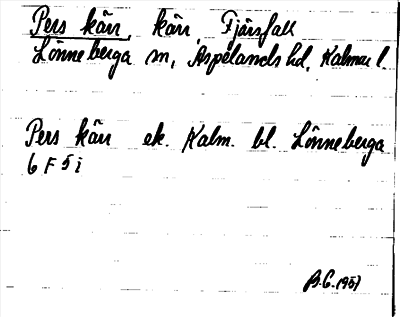 Pers kärr, kärr, Fjärsfall
Lönneberga sn, Aspelands hd, Kalmar l.
Pers kärr ek. Kalm. bl. Lönneberga
6 F 5 i
B.G. 1957